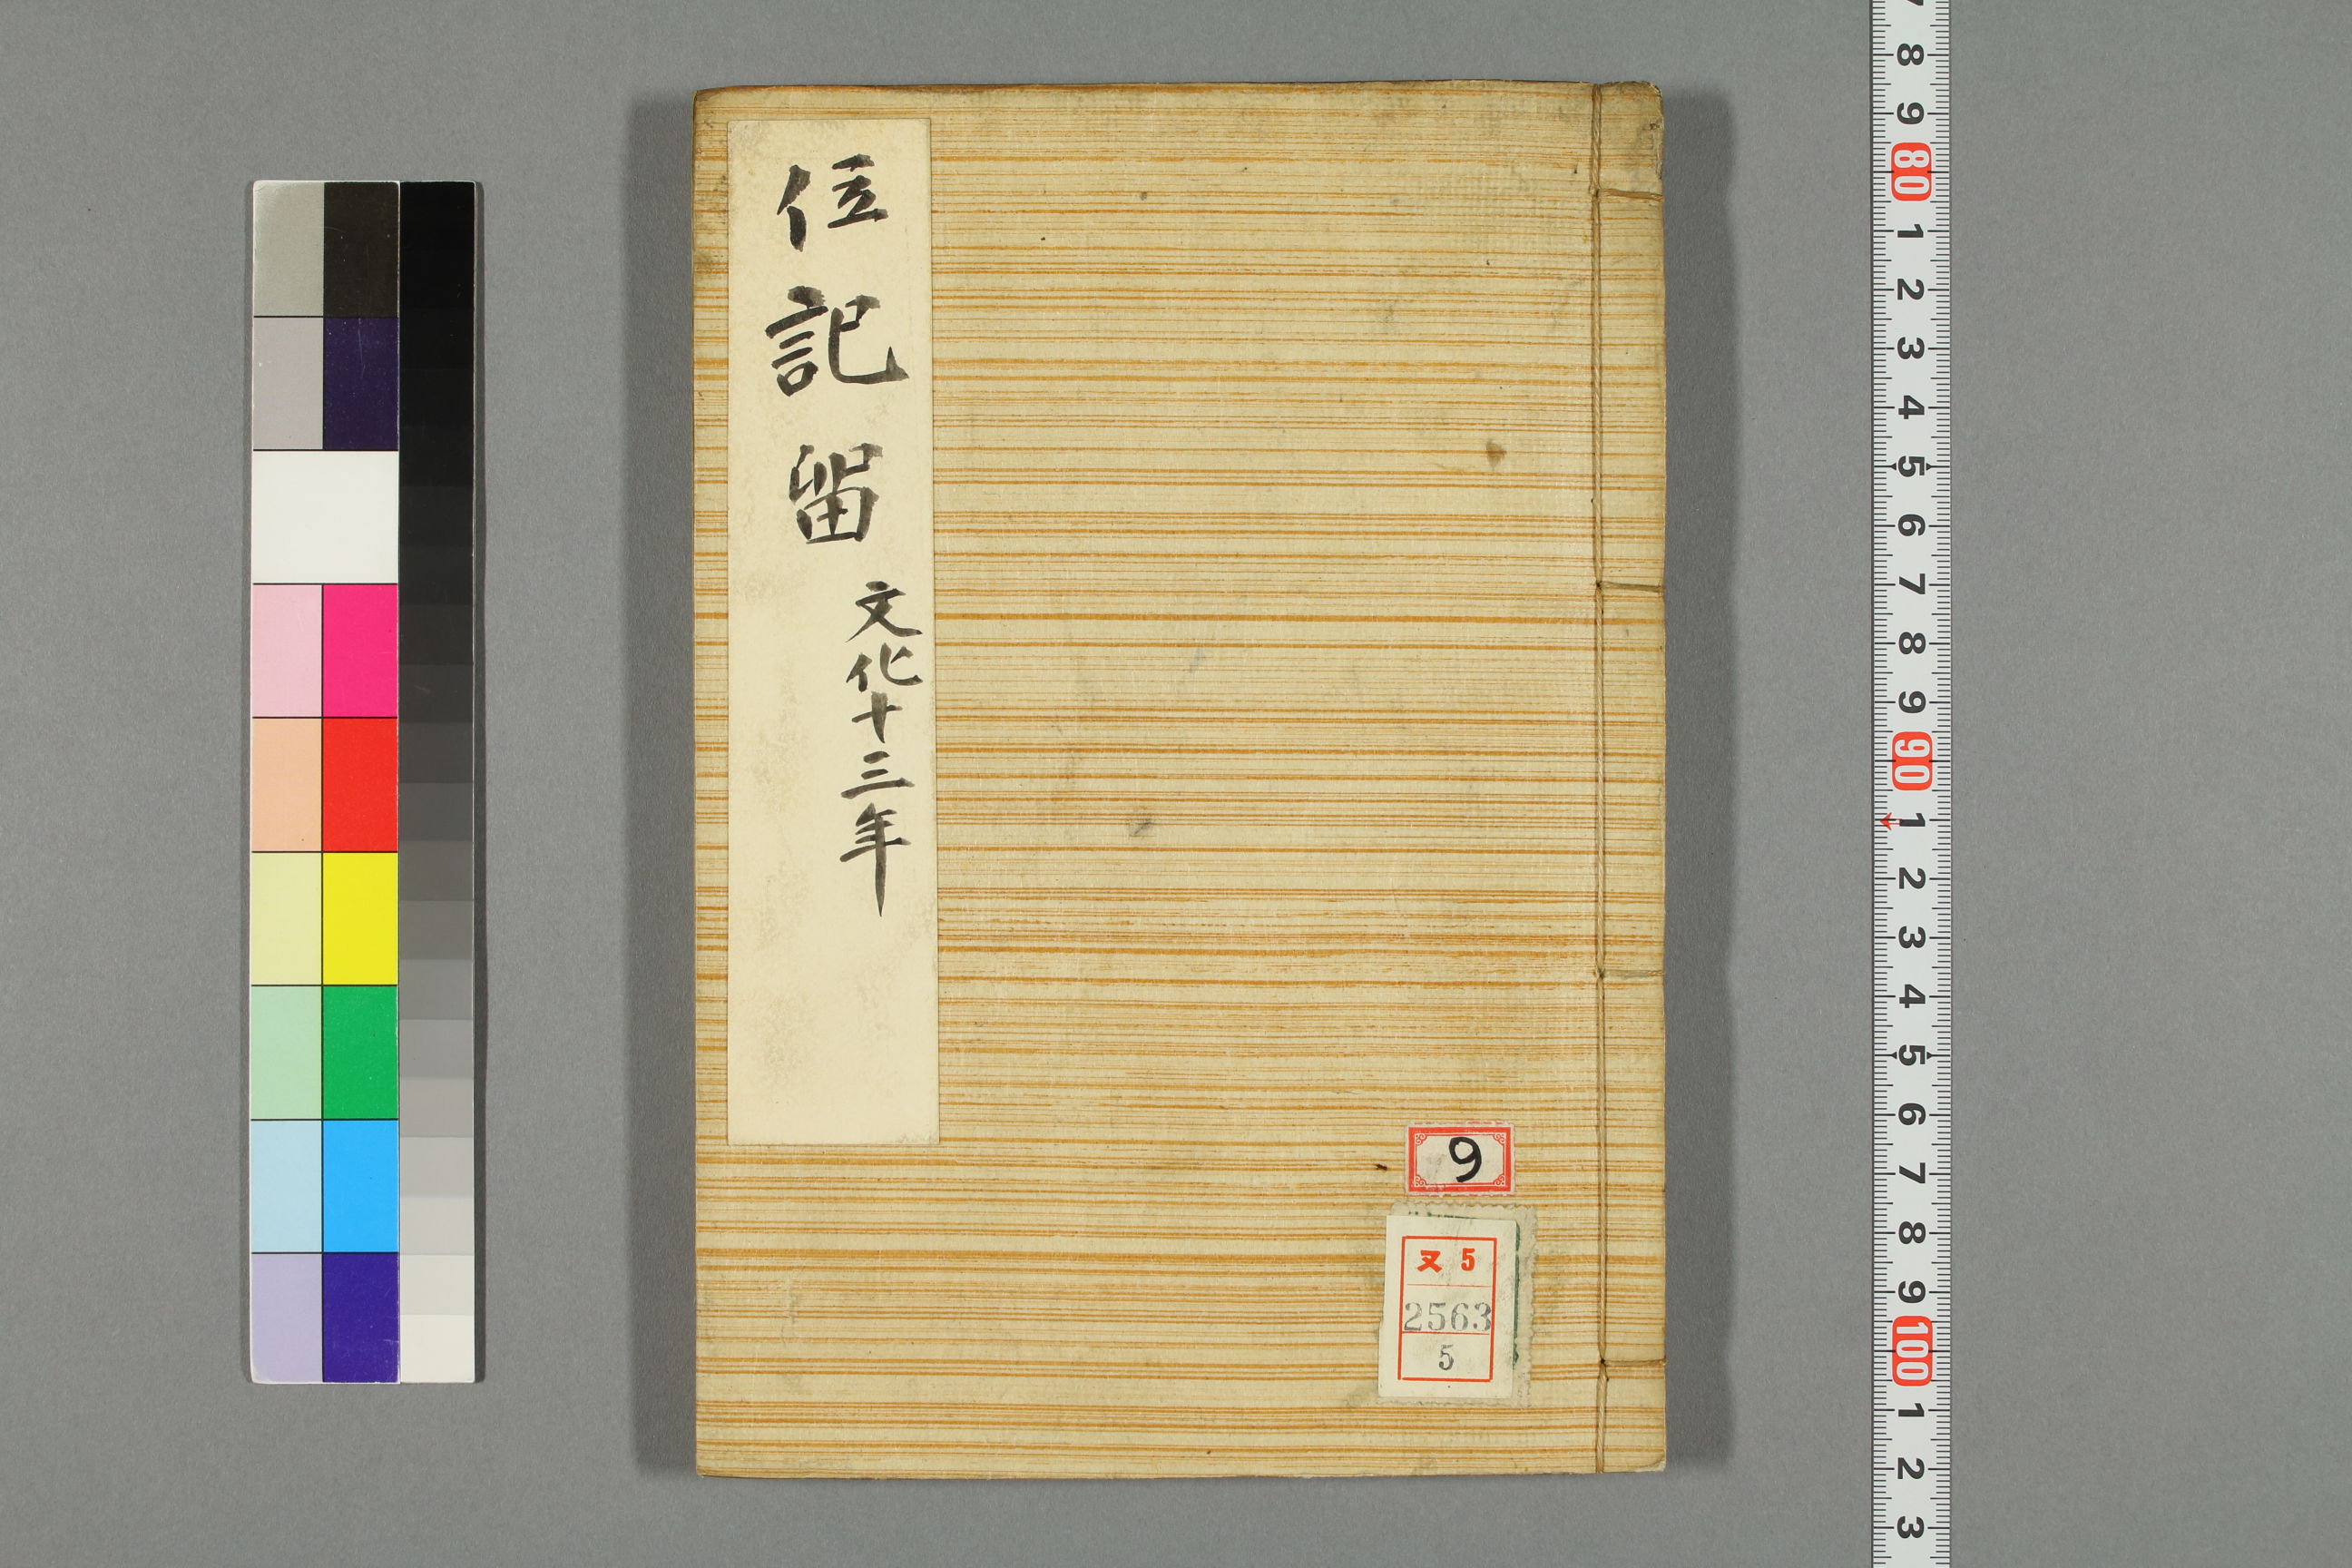 位記留
文化十三年
9
又 5
2563
5
7
8
9
80
1
2
3
4
5
6
7
8
9
90
1
2
3
4
5
6
7
8
9
100
1
2
3